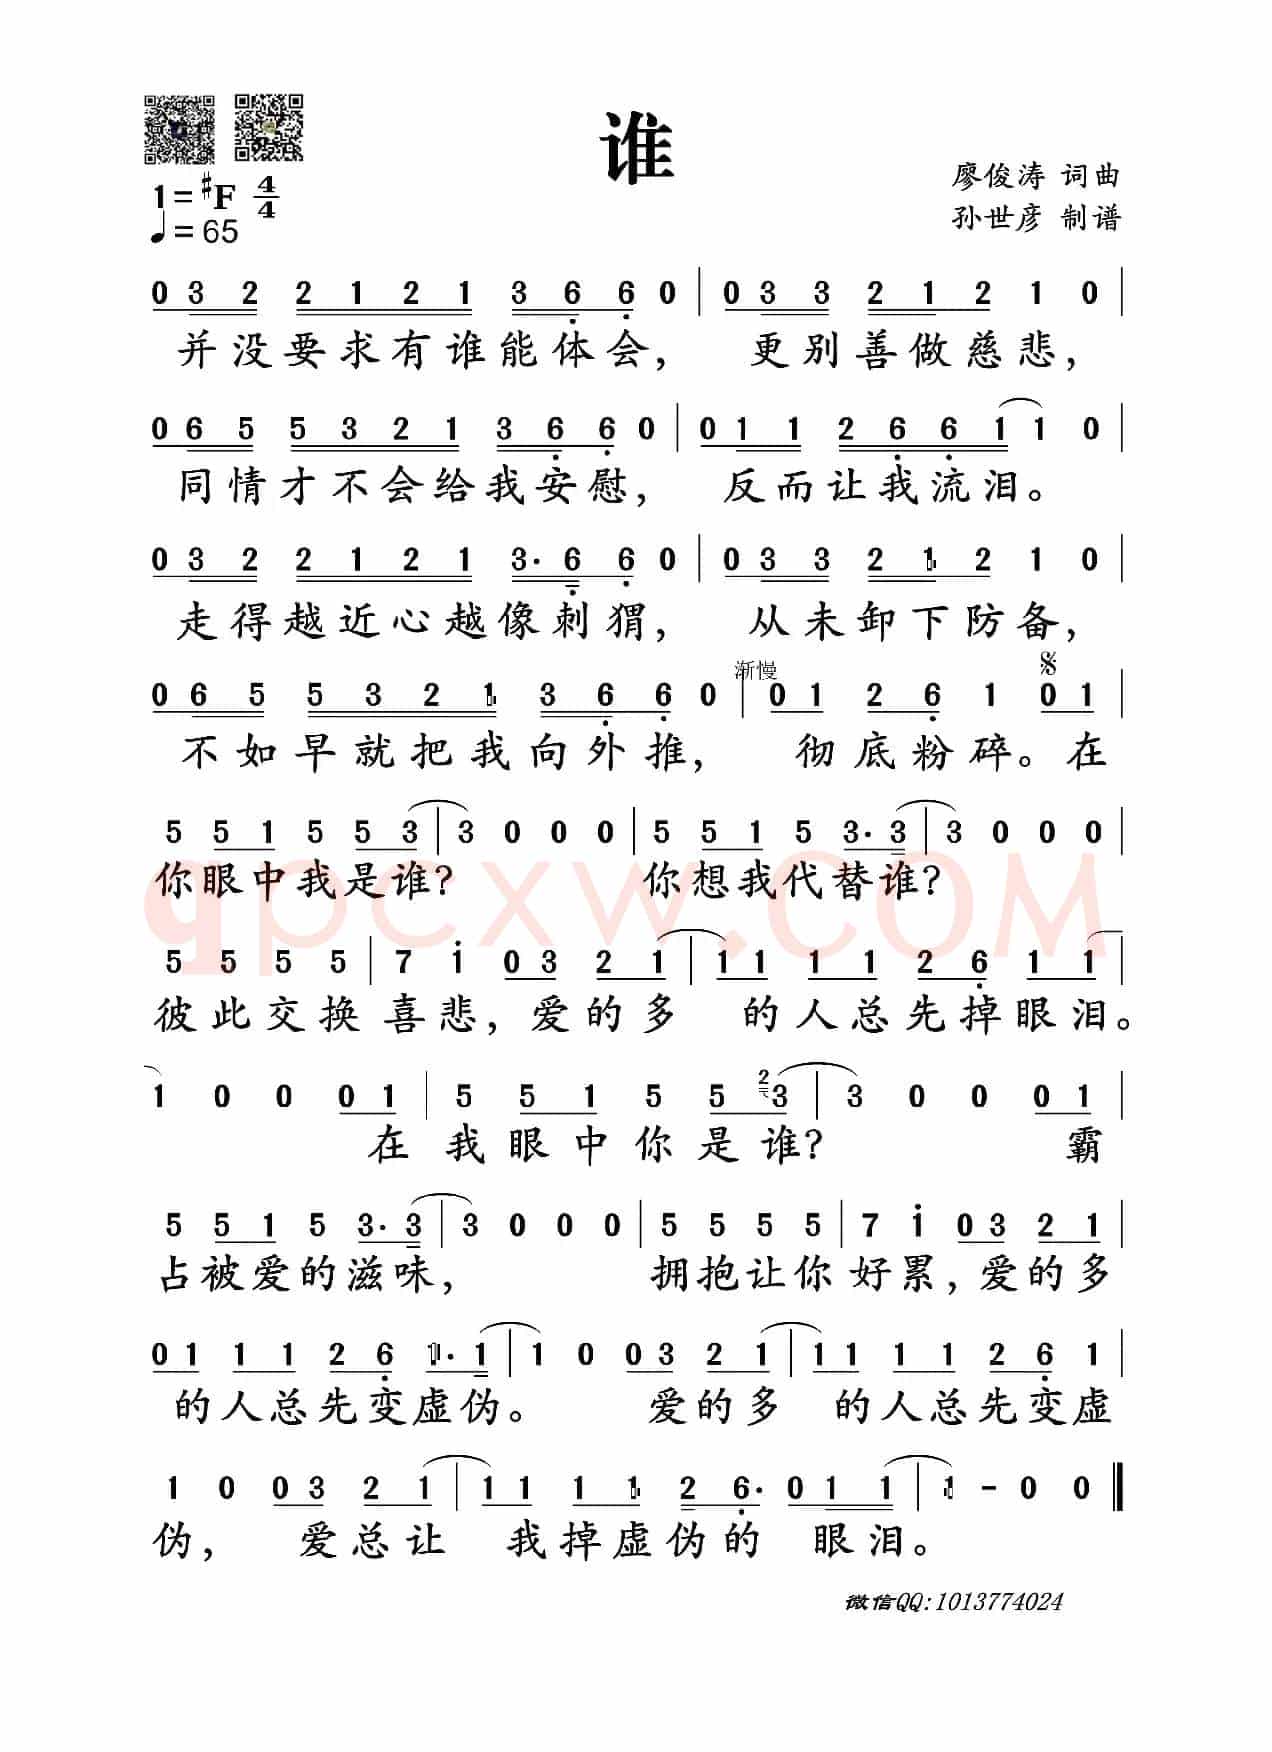 谁
廖俊涛 词曲
孙世彦 制谱
1=#F 4/4
♩=65
0 3 2 2 1 2 1 3 6 6 0 | 0 3 3 2 1 2 1 0 |
并没要求有谁能体会， 更别善做慈悲，
0 6 5 5 3 2 1 3 6 6 0 | 0 1 1 2 6 6 1 1 0 |
同情才不会给我安慰， 反而让我流泪。
0 3 2 2 1 2 1 3· 6 6 0 | 0 3 3 2 1 2 1 0 |
走得越近心越像刺猬， 从未卸下防备，
渐慢
0 6 5 5 3 2 1 3 6 6 0 | 0 1 2 6 1 0 1 |
不如早就把我向外推， 彻底粉碎。在
5 5 1 5 5 3 | 3 0 0 0 | 5 5 1 5 3· 3 | 3 0 0 0 |
你眼中我是谁？ 你想我代替谁？
qpcxw.COM
5 5 5 5 | 7 i 0 3 2 1 | 1 1 1 1 2 6 1 1 |
彼此交换喜悲，爱的多 的人总先掉眼泪。
1 0 0 0 1 | 5 5 1 5 5 2 3 | 3 0 0 0 1 |
在 我眼中你是谁？ 霸
5 5 1 5 3· 3 | 3 0 0 0 | 5 5 5 5 | 7 i 0 3 2 1 |
占被爱的滋味， 拥抱让你好累，爱的多
0 1 1 1 2 6 1· 1 | 1 0 0 3 2 1 | 1 1 1 1 2 6 1 |
的人总先变虚伪。 爱的多 的人总先变虚
1 0 0 3 2 1 | 1 1 1 1 2 6· 0 1 1 | 1 - 0 0 ‖
伪， 爱总让 我掉虚伪的 眼泪。
微信QQ:1013774024